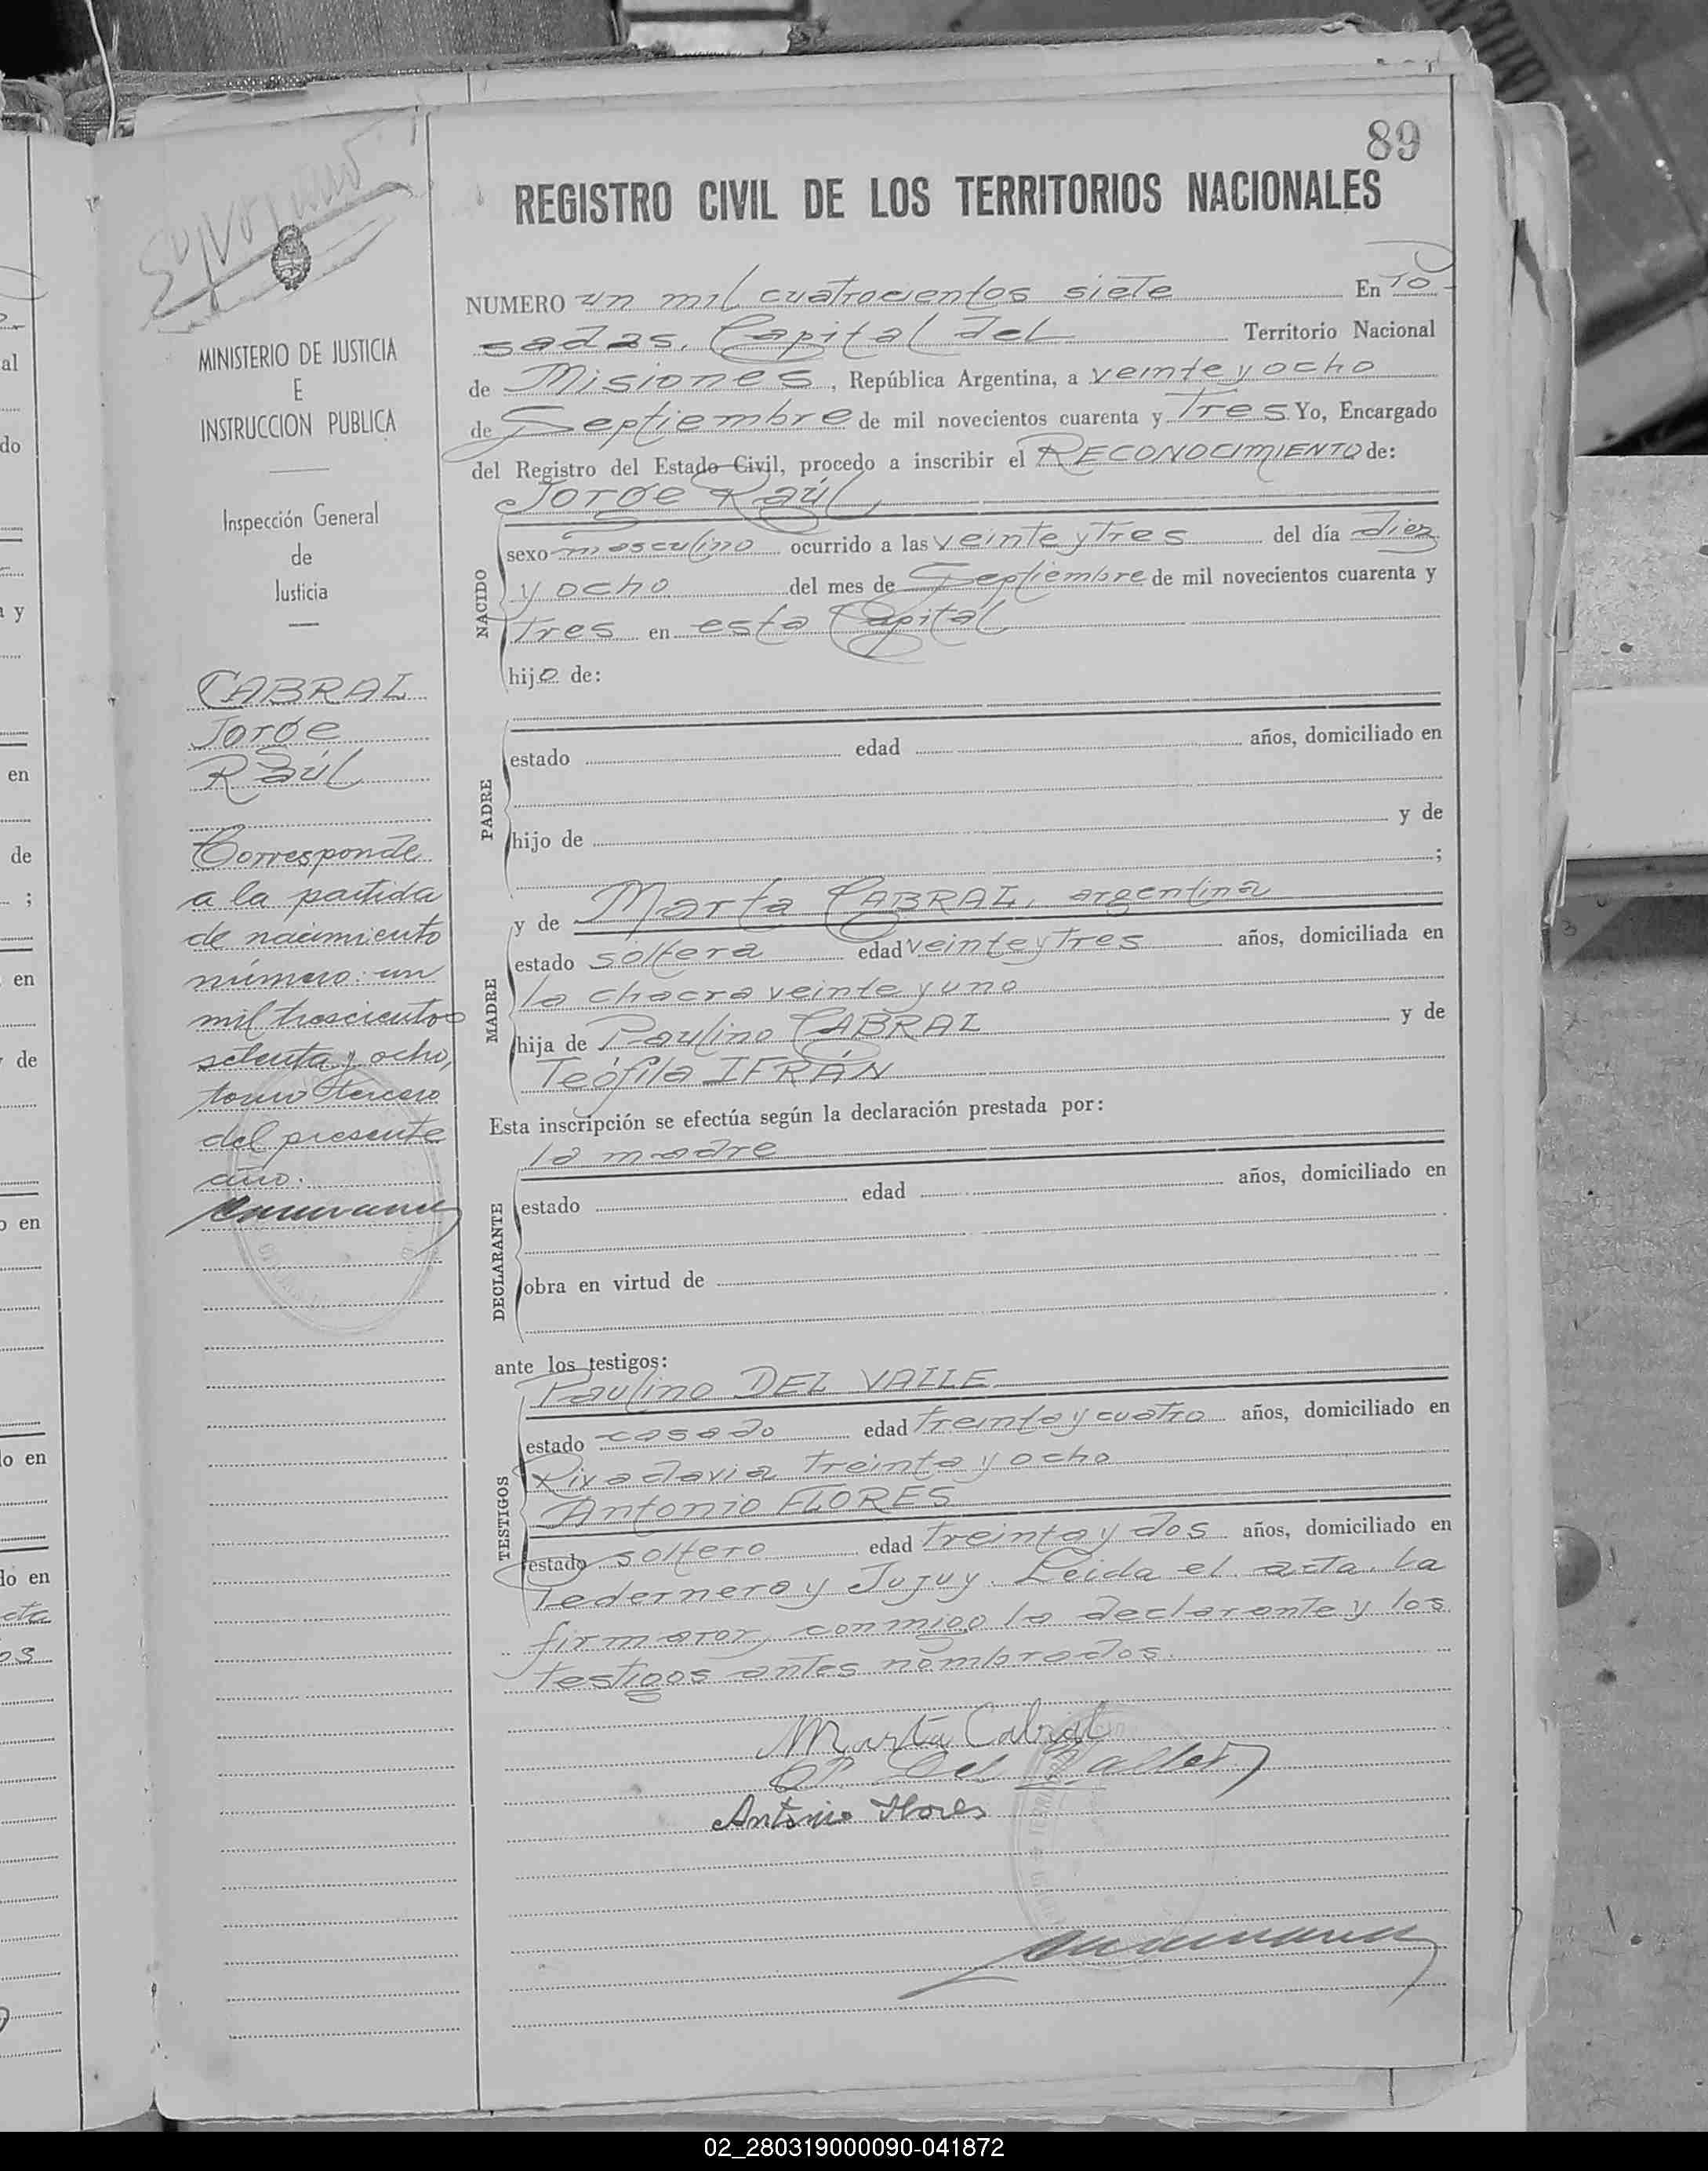 89
REGISTRO CIVIL DE LOS TERRITORIOS NACIONALES
NUMERO un mil cuatrocientos siete En Po
sadas, Capital del Territorio Nacional
de Misiones, República Argentina, a veinte y ocho
de Septiembre de mil novecientos cuarenta y Tres Yo, Encargado
del Registro del Estado Civil, procedo a inscribir el RECONOCIMIENTO de:
Jorge Raúl
NACIDO
sexo masculino ocurrido a las veinte y Tres del día diez
y ocho del mes de Septiembre de mil novecientos cuarenta y
Tres en esta Capital
hijo de:
PADRE
estado edad años, domiciliado en
hijo de y de
;
MADRE
y de Marta CABRAL, argentina
estado soltera edad veinte y Tres años, domiciliada en
la chacra veinte y uno
hija de Paulino CABRAL y de
Teófila IFRÁN
Esta inscripción se efectúa según la declaración prestada por:
la madre
DECLARANTE
estado edad años, domiciliado en
obra en virtud de
ante los testigos:
TESTIGOS
Paulino DEL VALLE
estado casado edad Treinta y cuatro años, domiciliado en
Rivadavia Treinta y ocho
Antonio FLORES
estado soltero edad Treinta y dos años, domiciliado en
Pedernera y Jujuy. Leida el acta. la
firmaron, conmigo la declarante y los
testigos antes nombrados.
Marta Cabral
P. Del Valle
Antonio Flores
MINISTERIO DE JUSTICIA
E
INSTRUCCION PUBLICA
Inspección General
de
Justicia
CABRAL
Jorge
Raúl
Corresponde
a la partida
de nacimiento
número: un
mil trescientos
setenta y ocho,
tomo tercero
del presente
año.
al
do
y
en
de
;
en
de
o en
lo en
do en
02_280319000090-041872